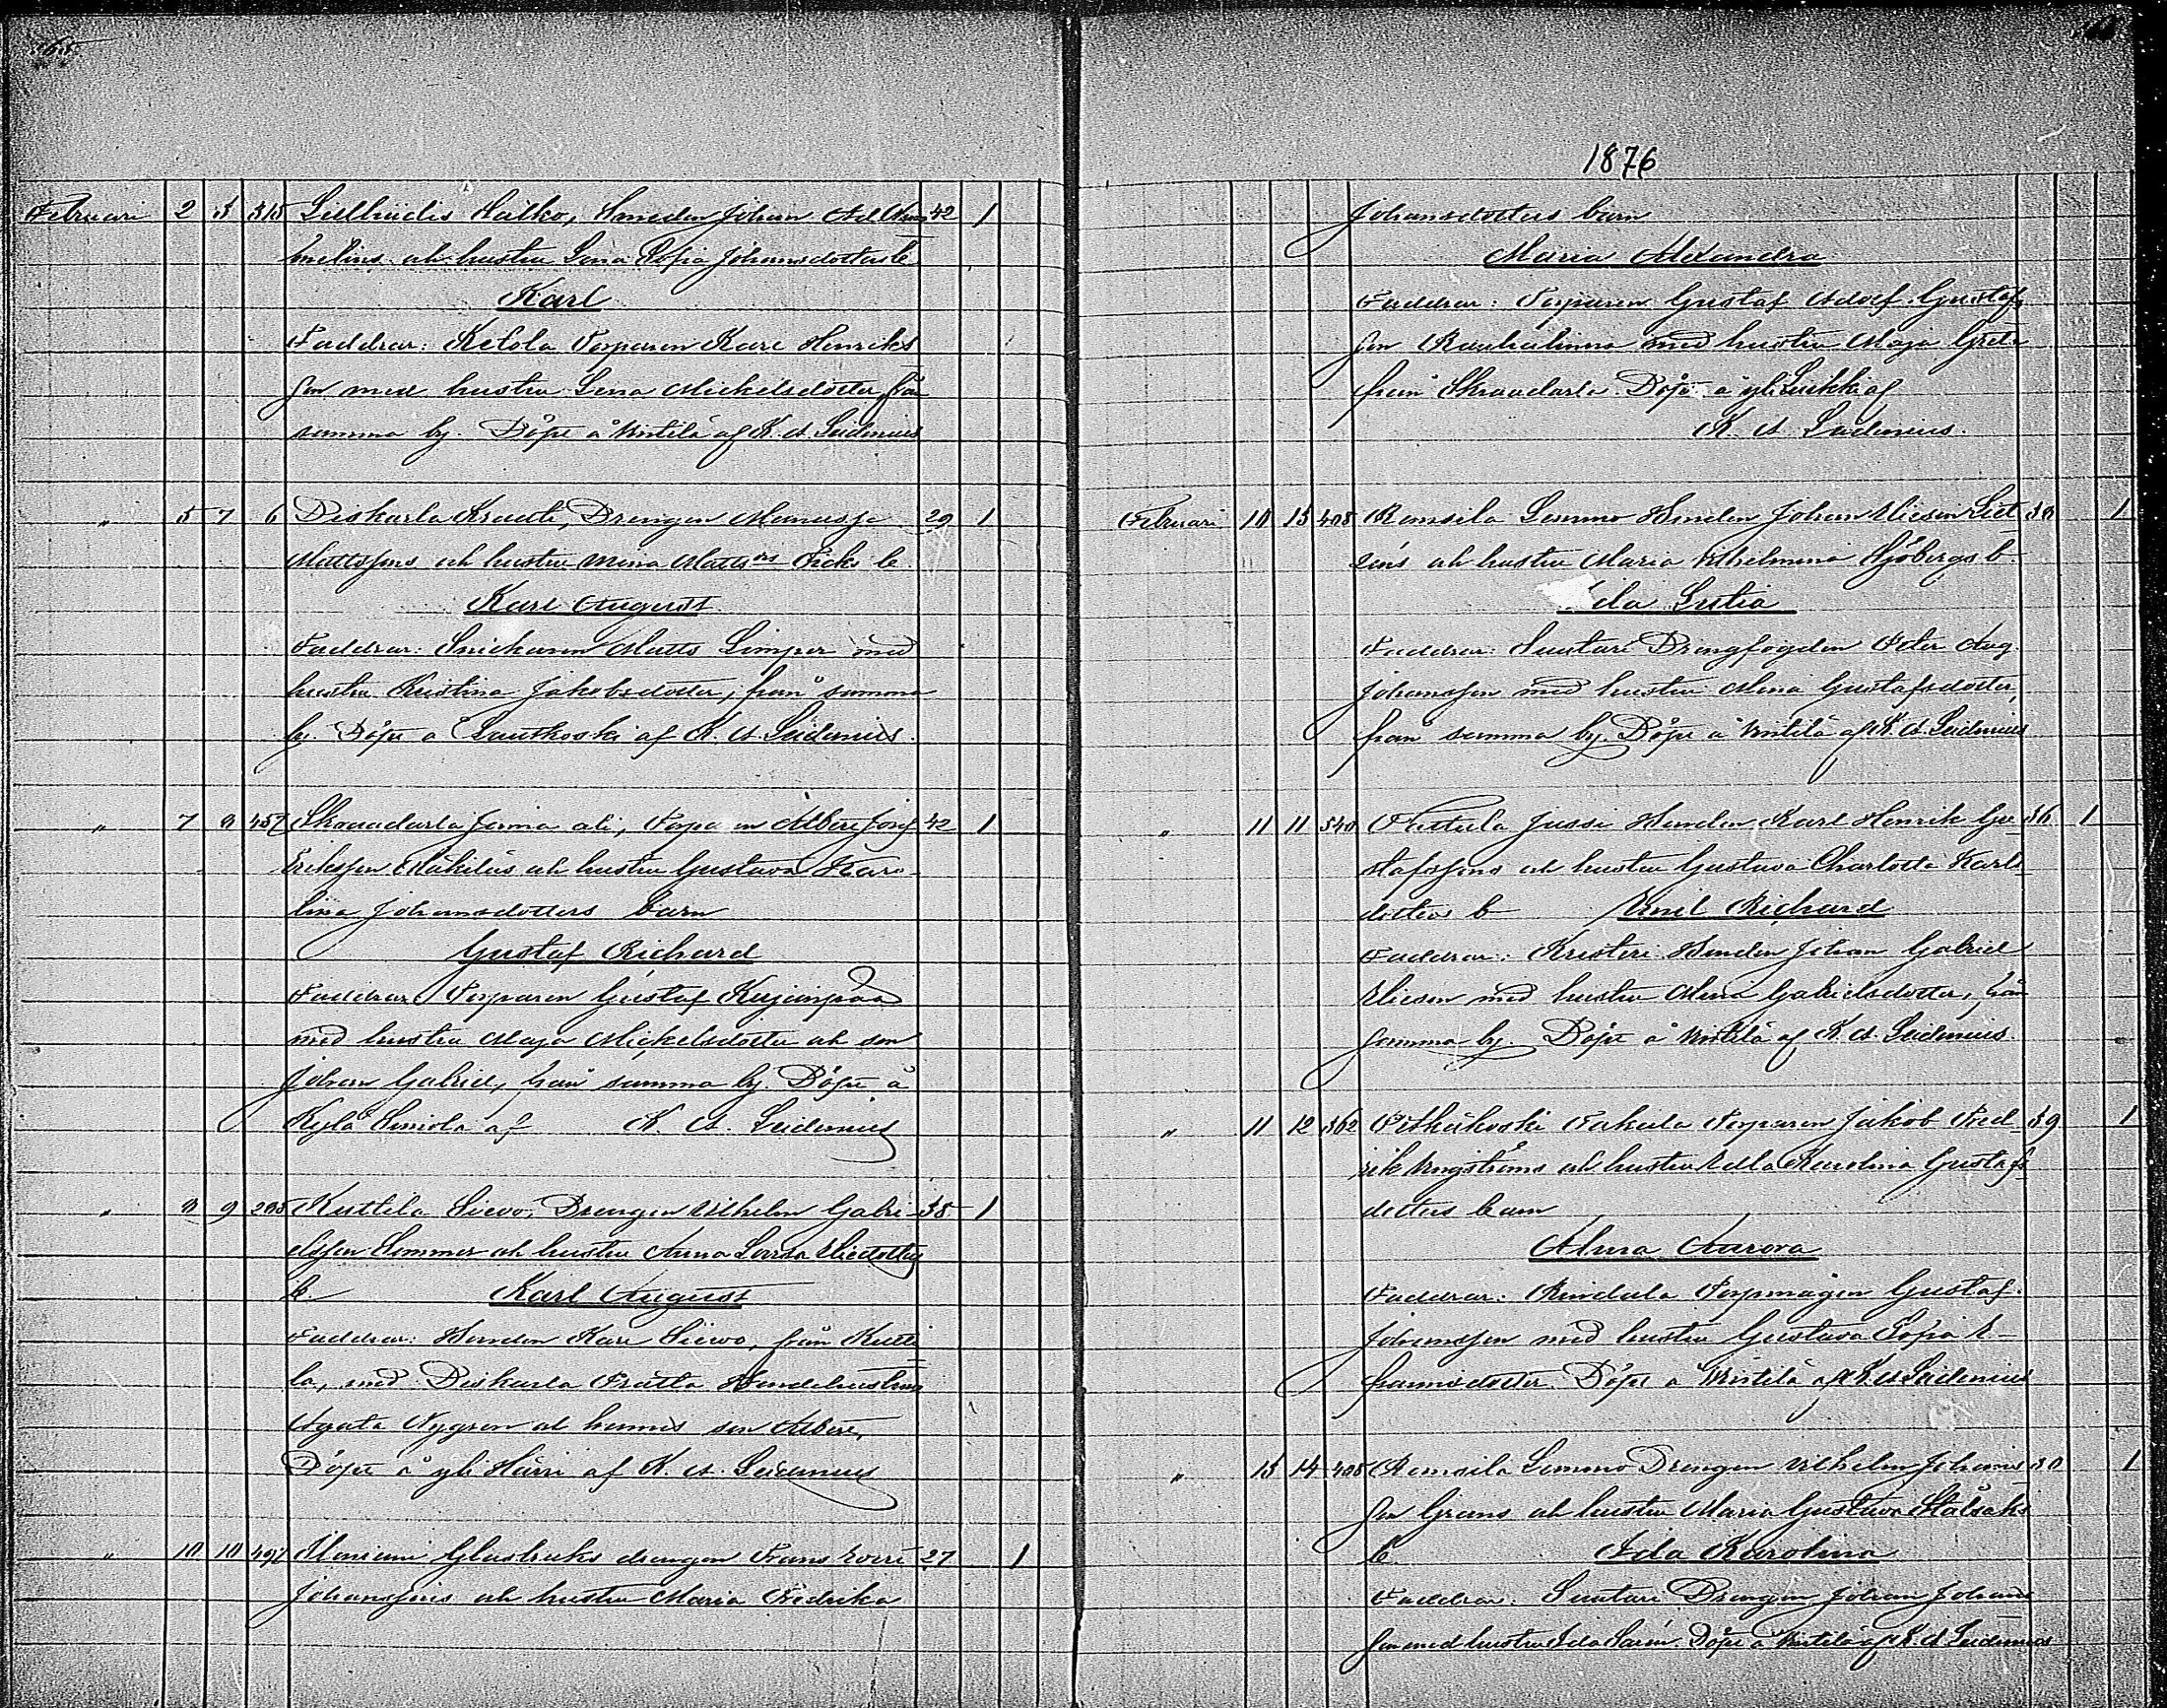 Februari 2 5 315 Sillbüdis Sälkö, Smeden Johan Adolf 42 1
melins och hustru Lena Sofia Johansdotters b.
Karl
Faddrar: Ketola Torparen Karl Henriks
son med hustru Lena Mickelsdotter, från
samma by. Döpt å Wintilä af K. A. Leidenius
" 5 7 6 Deskarla Krauti, Drengen Manasse 29 1
Mattssons och hustru Mina Matts
Karl August
Faddrar: Snickaren Matts Limper med
hustru Kristina Jakobsdotter, från samma
by. Döpt å Lautkoski af K. A. Leidenius.
" 7 8 457 Skraadarla Jerma ali, Torparen Albert Josef 42 1
Eriksson Mäkiläs och hustru Gustava Karo-
lina Johansdotters barn
Gustaf Richard
Faddrar Torparen Gustaf Kujanpää
med hustru Maja Mickelsdotter och son
Johan Gabriel, från samma by. Döpt å
Kylä Simola af K. A. Leidenius
" 8 9 285 Kuttila Sievo, Drengen Vilhelm Gabri- 35 1
elsson Sommer och hustru Anna Lovisa Eliedotters
b. Karl August
Faddrar: Bonden Karl Sievo, från Kutti
la, med Deskarla Prätla Bondehustrun
Agata Nygren och hennes son Albert,
Döpt å yli Härri af K. A. Leidenius
" 10 10 497 Glasbruks drengen Frans Evert 27 1
Johanssons och hustru Maria Fredrika
1876
Johansdotters barn
Maria Alexandra
Faddrar: Torparen Gustaf Adolf Gustafs
son Rauhalinna med hustru Maja Greta
från Skraadarla. Döpt å yli Luikki af
K. A. Leidenius.
Februari 10 13 408 Remsila Lemmo Bonden Johan Eliesen List 38 1
réns och hustru Maria Vilhelmina Sjöbergs b.
Ida Lutia
Faddrar: Suutari Drengfogden Peter Aug.
Johansson med hustru Mina Gustafsdotter,
från samma by. Döpt å Wintilä af K. A. Leidenius
" 11 11 540 Jussi Bonden Karl Henrik Gu- 36 1
stafssons och hustru Gustava Charlotta Karls
dotters b Emil Richard
Faddrar: Kristeri Bonden Johan Gabriel
Eliesen med hustru Mina Gabrielsdotter, från
samma by. Döpt å Wintilä af K. A. Leidenius.
" 11 12 362 Pitkäkoski Torparen Jakob Fred- 39 1
rik Engströms och hustru Edla Karolina Gustafs
dotters barn
Alma Aurora
Faddrar: Rindala Torpmågen Gustaf
Johansson med hustru Gustava Sofia E-
fraimsdotter. Döpt å Wintilä af K. A. Leidenius
" 13 14 408 Remsila Lemmo Drengen Vilhelm Johans 30 1
son Grans och hustru Maria Gustava Stålsaks
b Ida Karolina
Faddrar: Suutari Drengen Johan Johans
son med hustru Ida Sarin. Döpt å Wintilä af K. A. Leidenius